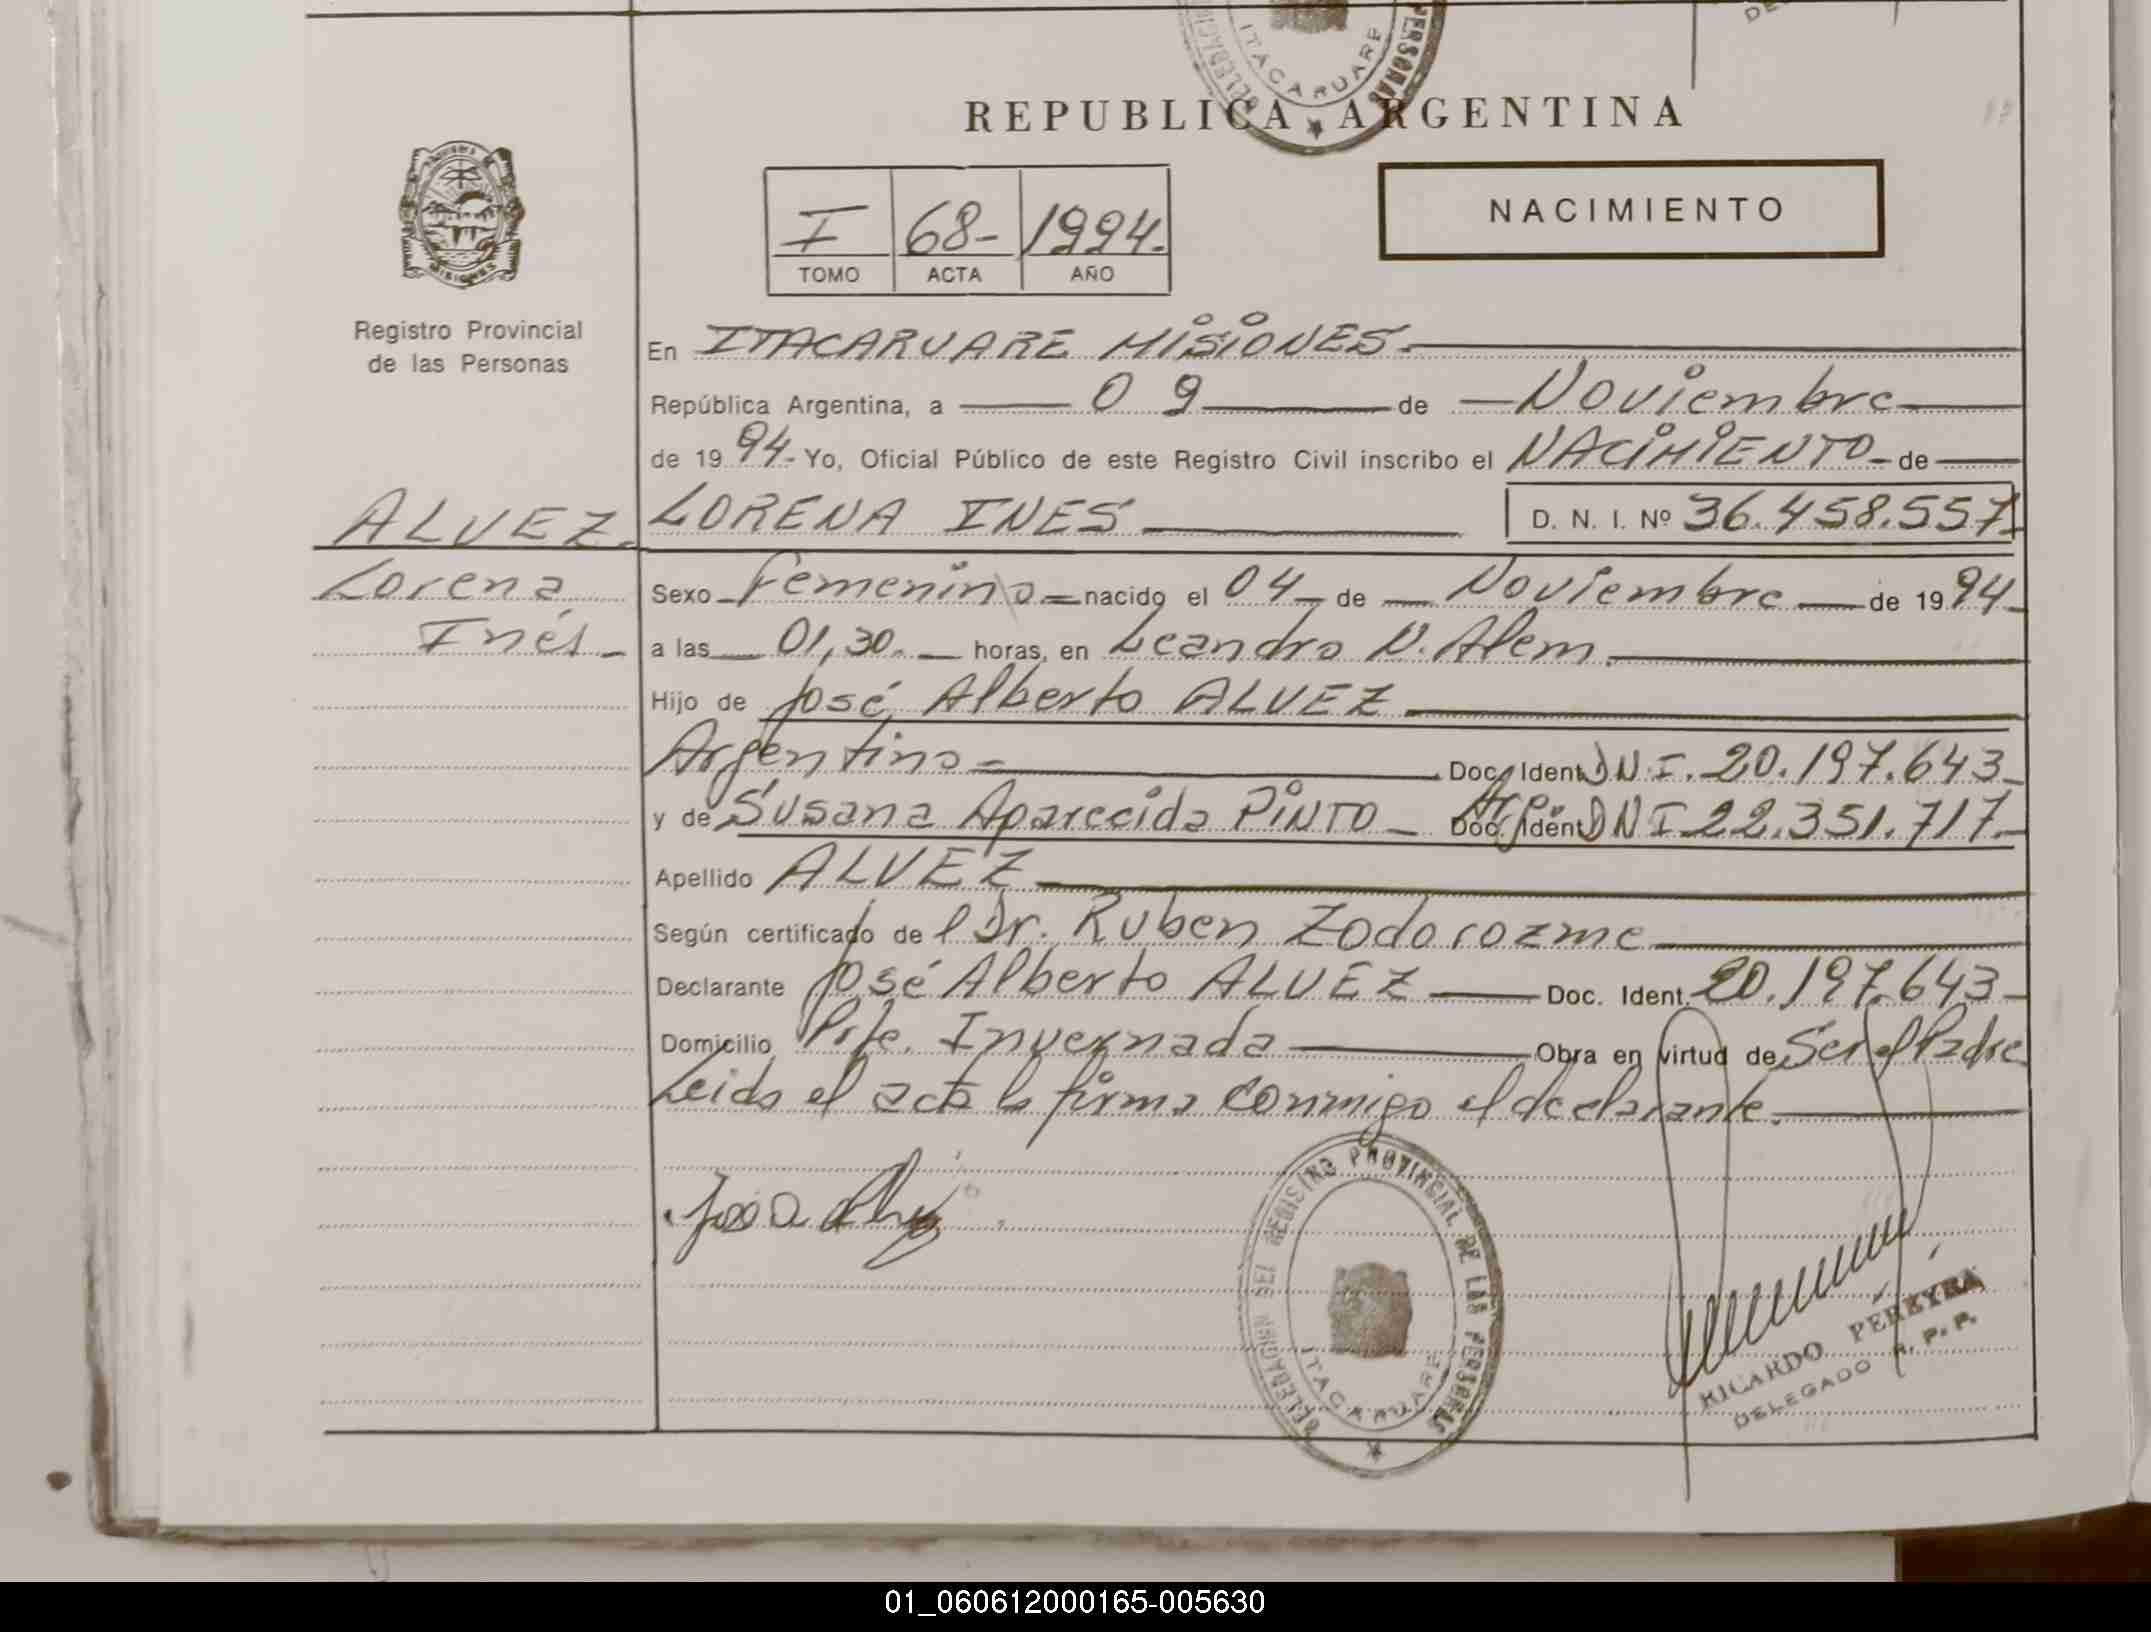 ITACARUARE
PERSONAS
REPUBLICA ARGENTINA
NACIMIENTO
I 68- 1994.
TOMO ACTA AÑO
MISIONES
Registro Provincial
de las Personas
En ITACARUARE MISIONES.
República Argentina, a 09 de Noviembre
de 1994- Yo, Oficial Público de este Registro Civil inscribo el NACIMIENTO de
ALVEZ. LORENA INES D. N. I. Nº 36.458.557
Lorena
Inés
Sexo Femenino nacido el 04 de Noviembre de 1994
a las 01,30. horas, en Leandro N. Alem.
Hijo de José Alberto ALVEZ
Argentino Doc. Ident. DNI. 20.197.643
y de Susana Aparecida PINTO Arg. Doc. Ident. DNI 22.351.717.
Apellido ALVEZ
Según certificado de l Dr. Ruben Zodorozme
Declarante José Alberto ALVEZ Doc. Ident. 20.197.643
Domicilio Pje. Invernada Obra en virtud de Ser el Padre
Leido el acta la firma conmigo el declarante.
DELEGACION DEL REGISTRO PROVINCIAL DE LAS PERSONAS
ITACARUARE
RICARDO PEREYRA
DELEGADO R. P. P.
01_060612000165-005630